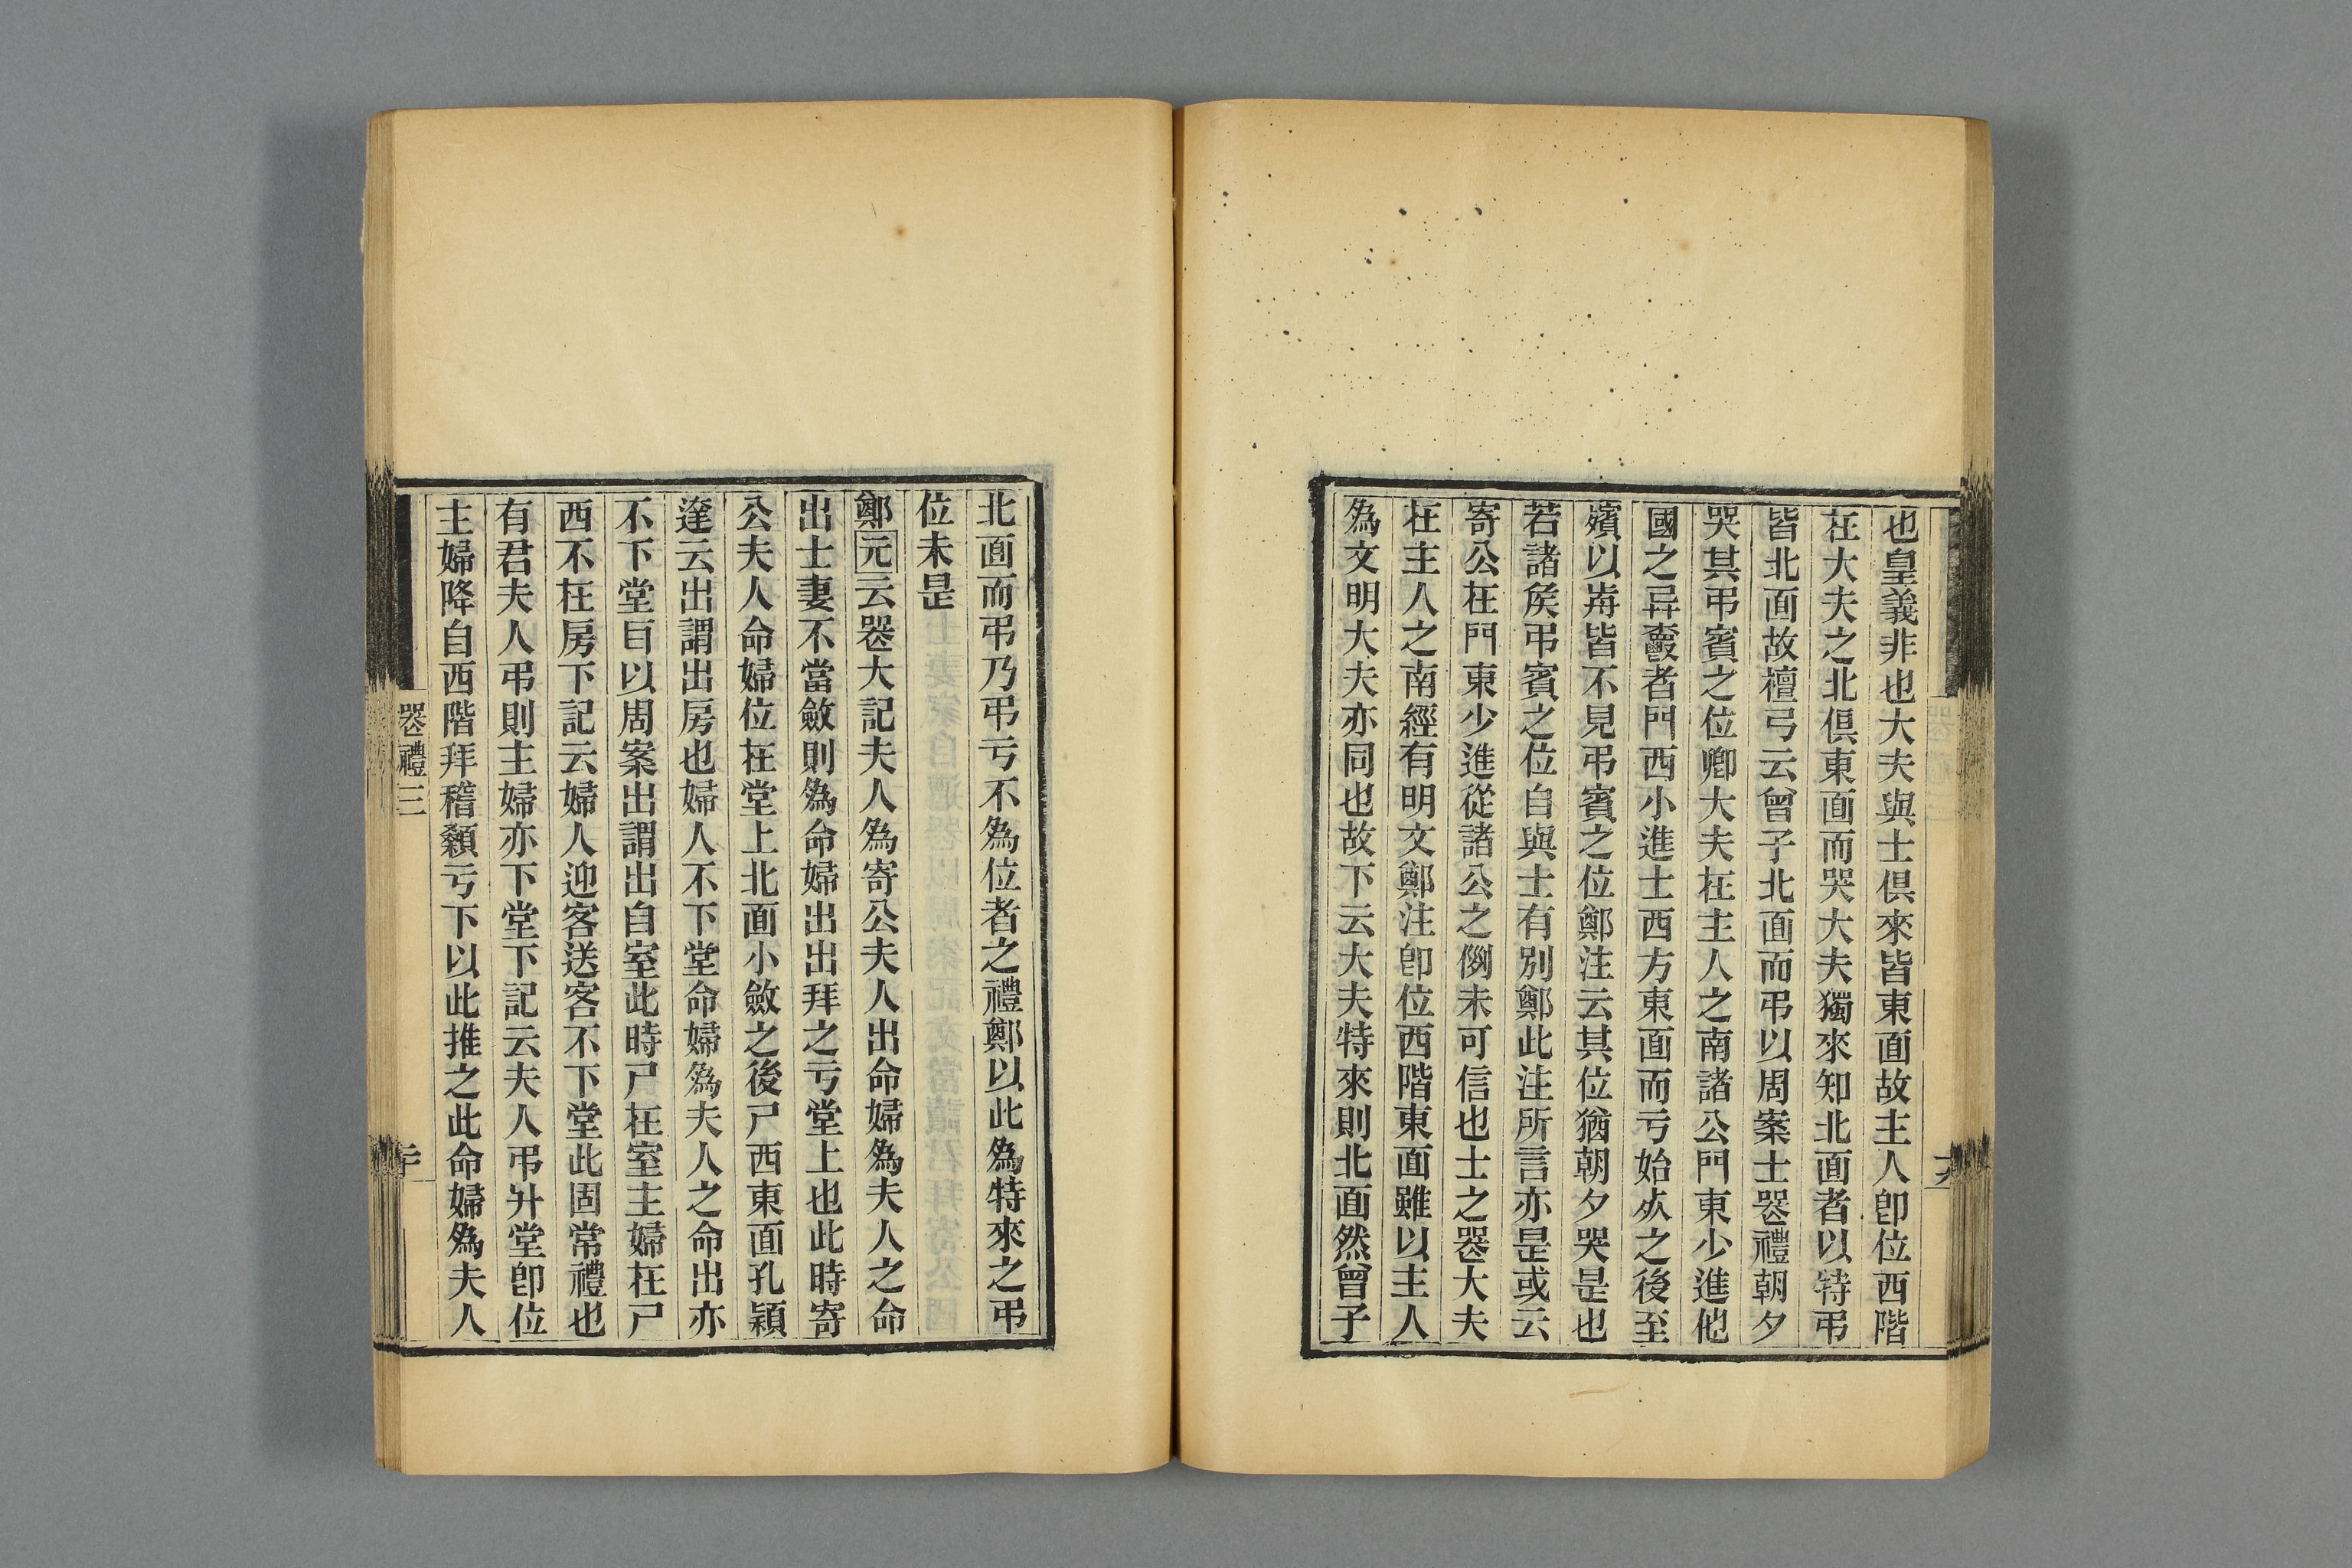 也皇義非也大夫與士俱來皆東面故主人卽位西階
在大夫之北俱東面而哭大夫獨來知北面者以特弔
皆北面故檀弓云曾子北面而弔以周案士器禮朝夕
哭其弔賓之位卿大夫在主人之南諸公門東少進他
國之异爵者門西小進士西方東面而亏始𣦸之後至
殯以歬皆不見弔賓之位鄭注云其位猶朝夕哭是也
若諸矦弔賓之位自與士有別鄭此注所言亦是或云
寄公在門東少進從諸公之例未可信也士之器大夫
在主人之南經有明文鄭注卽位西階東面雖以主人
爲文明大夫亦同也故下云大夫特來則北面然曾子
北面而弔乃弔亏不爲位者之禮鄭以此爲特來之弔
位未是
鄭元云器大記夫人爲寄公夫人出命婦爲夫人之命
出士妻不當斂則爲命婦出出拜之亏堂上也此時寄
公夫人命婦位在堂上北面小斂之後尸西東面孔穎
達云出謂出房也婦人不下堂命婦爲夫人之命出亦
不下堂㠯以周案出謂出自室此時尸在室主婦在尸
西不在房下記云婦人迎客送客不下堂此固常禮也
有君夫人弔則主婦亦下堂下記云夫人弔升堂卽位
主婦降自西階拜稽顙亏下以此推之此命婦爲夫人
器禮三